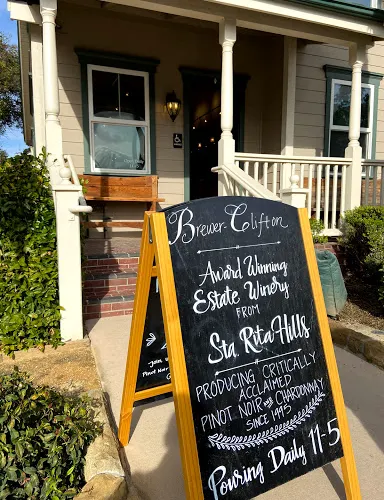 Brewer Clifton
Award Winning
Estate Winery
FROM
Sta. Rita Hills
PRODUCING CRITICALLY
ACCLAIMED
PINOT NOIR and CHARDONNAY
SINCE 1995
Pouring Daily 11-5
Join
Pinot Noir